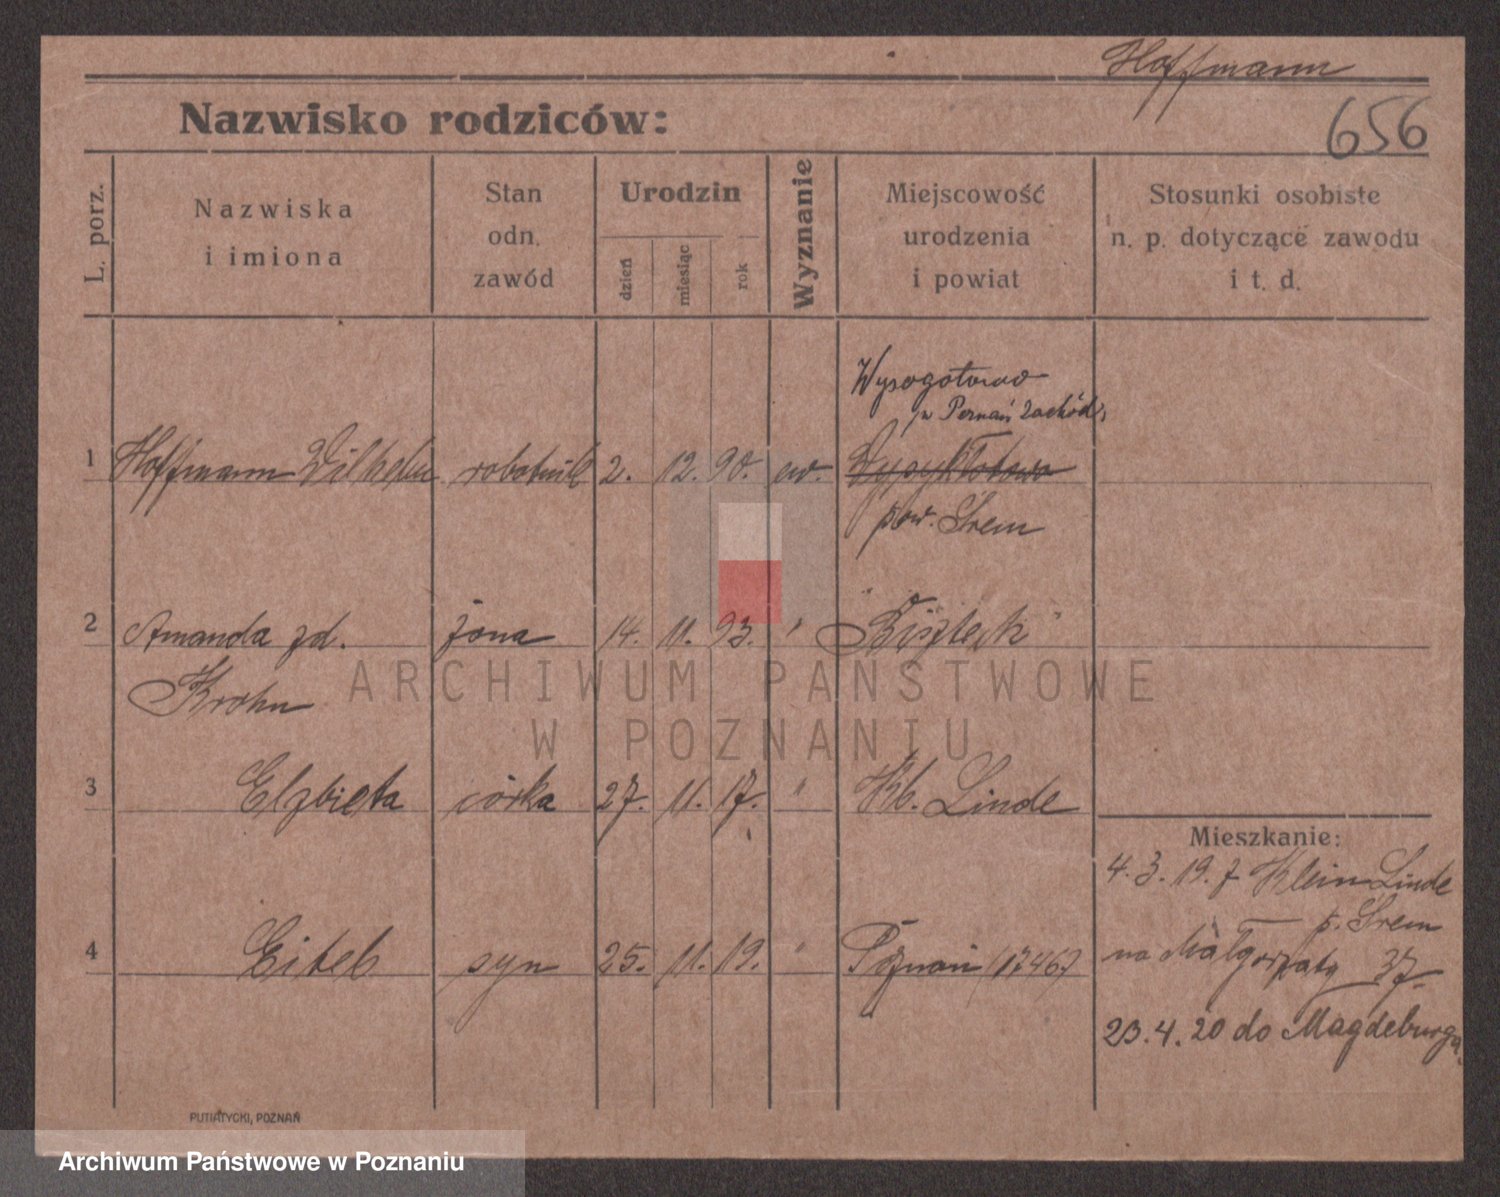 Hoffmann
656
Nazwisko rodziców:
L. porz.
Nazwiska
i imiona
Stan
odn.
zawód
Urodzin
dzień
miesiąc
rok
Wyznanie
Miejscowość
urodzenia
i powiat
Stosunki osobiste
n. p. dotyczące zawodu
i t. d.
Wysogotowo
p Poznań Zachód
1 Hoffmann Wilhelm robotnik 2. 12. 90. ew.
pow. Śrem
2 Amanda zd. żona 14. 11. 93. "
Krohn
3 Elzbieta córka 27. 11. 17. " Kl. Linde
Mieszkanie:
4. 3. 19. z Klein Linde
p. Śrem
4 Eiteb syn 25. 11. 19. " Poznań (1746)
na Małgorzatę 37.
23. 4. 20 do Magdeburga
PUTIATYCKI, POZNAŃ
ARCHIWUM PAŃSTWOWE
W POZNANIU
Archiwum Państwowe w Poznaniu